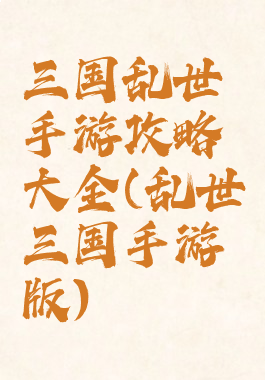 三国乱世
手游攻略
大全(乱世
三国手游
版)